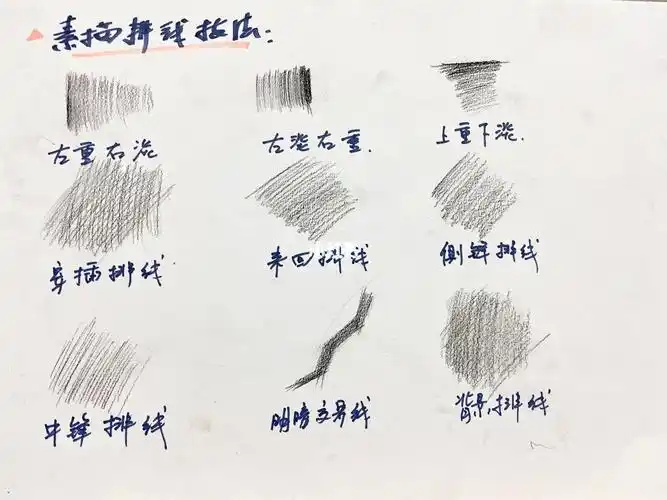 素描排线技法:
左重右淡
左淡右重.
上重下淡.
穿插排线
来回排线
侧锋排线
中锋排线
明暗交界线
背景排线